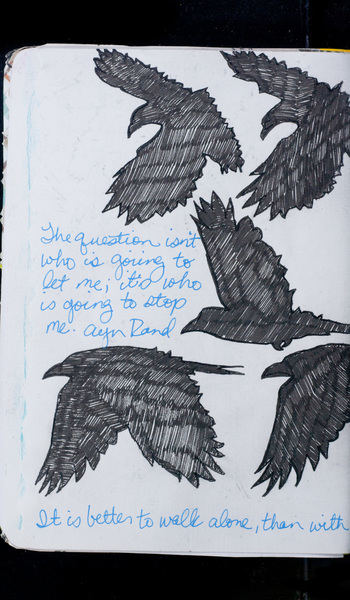 The question isn't
who is going to
let me; it's who
is going to stop
me. Ayn Rand
It is better to walk alone, than with